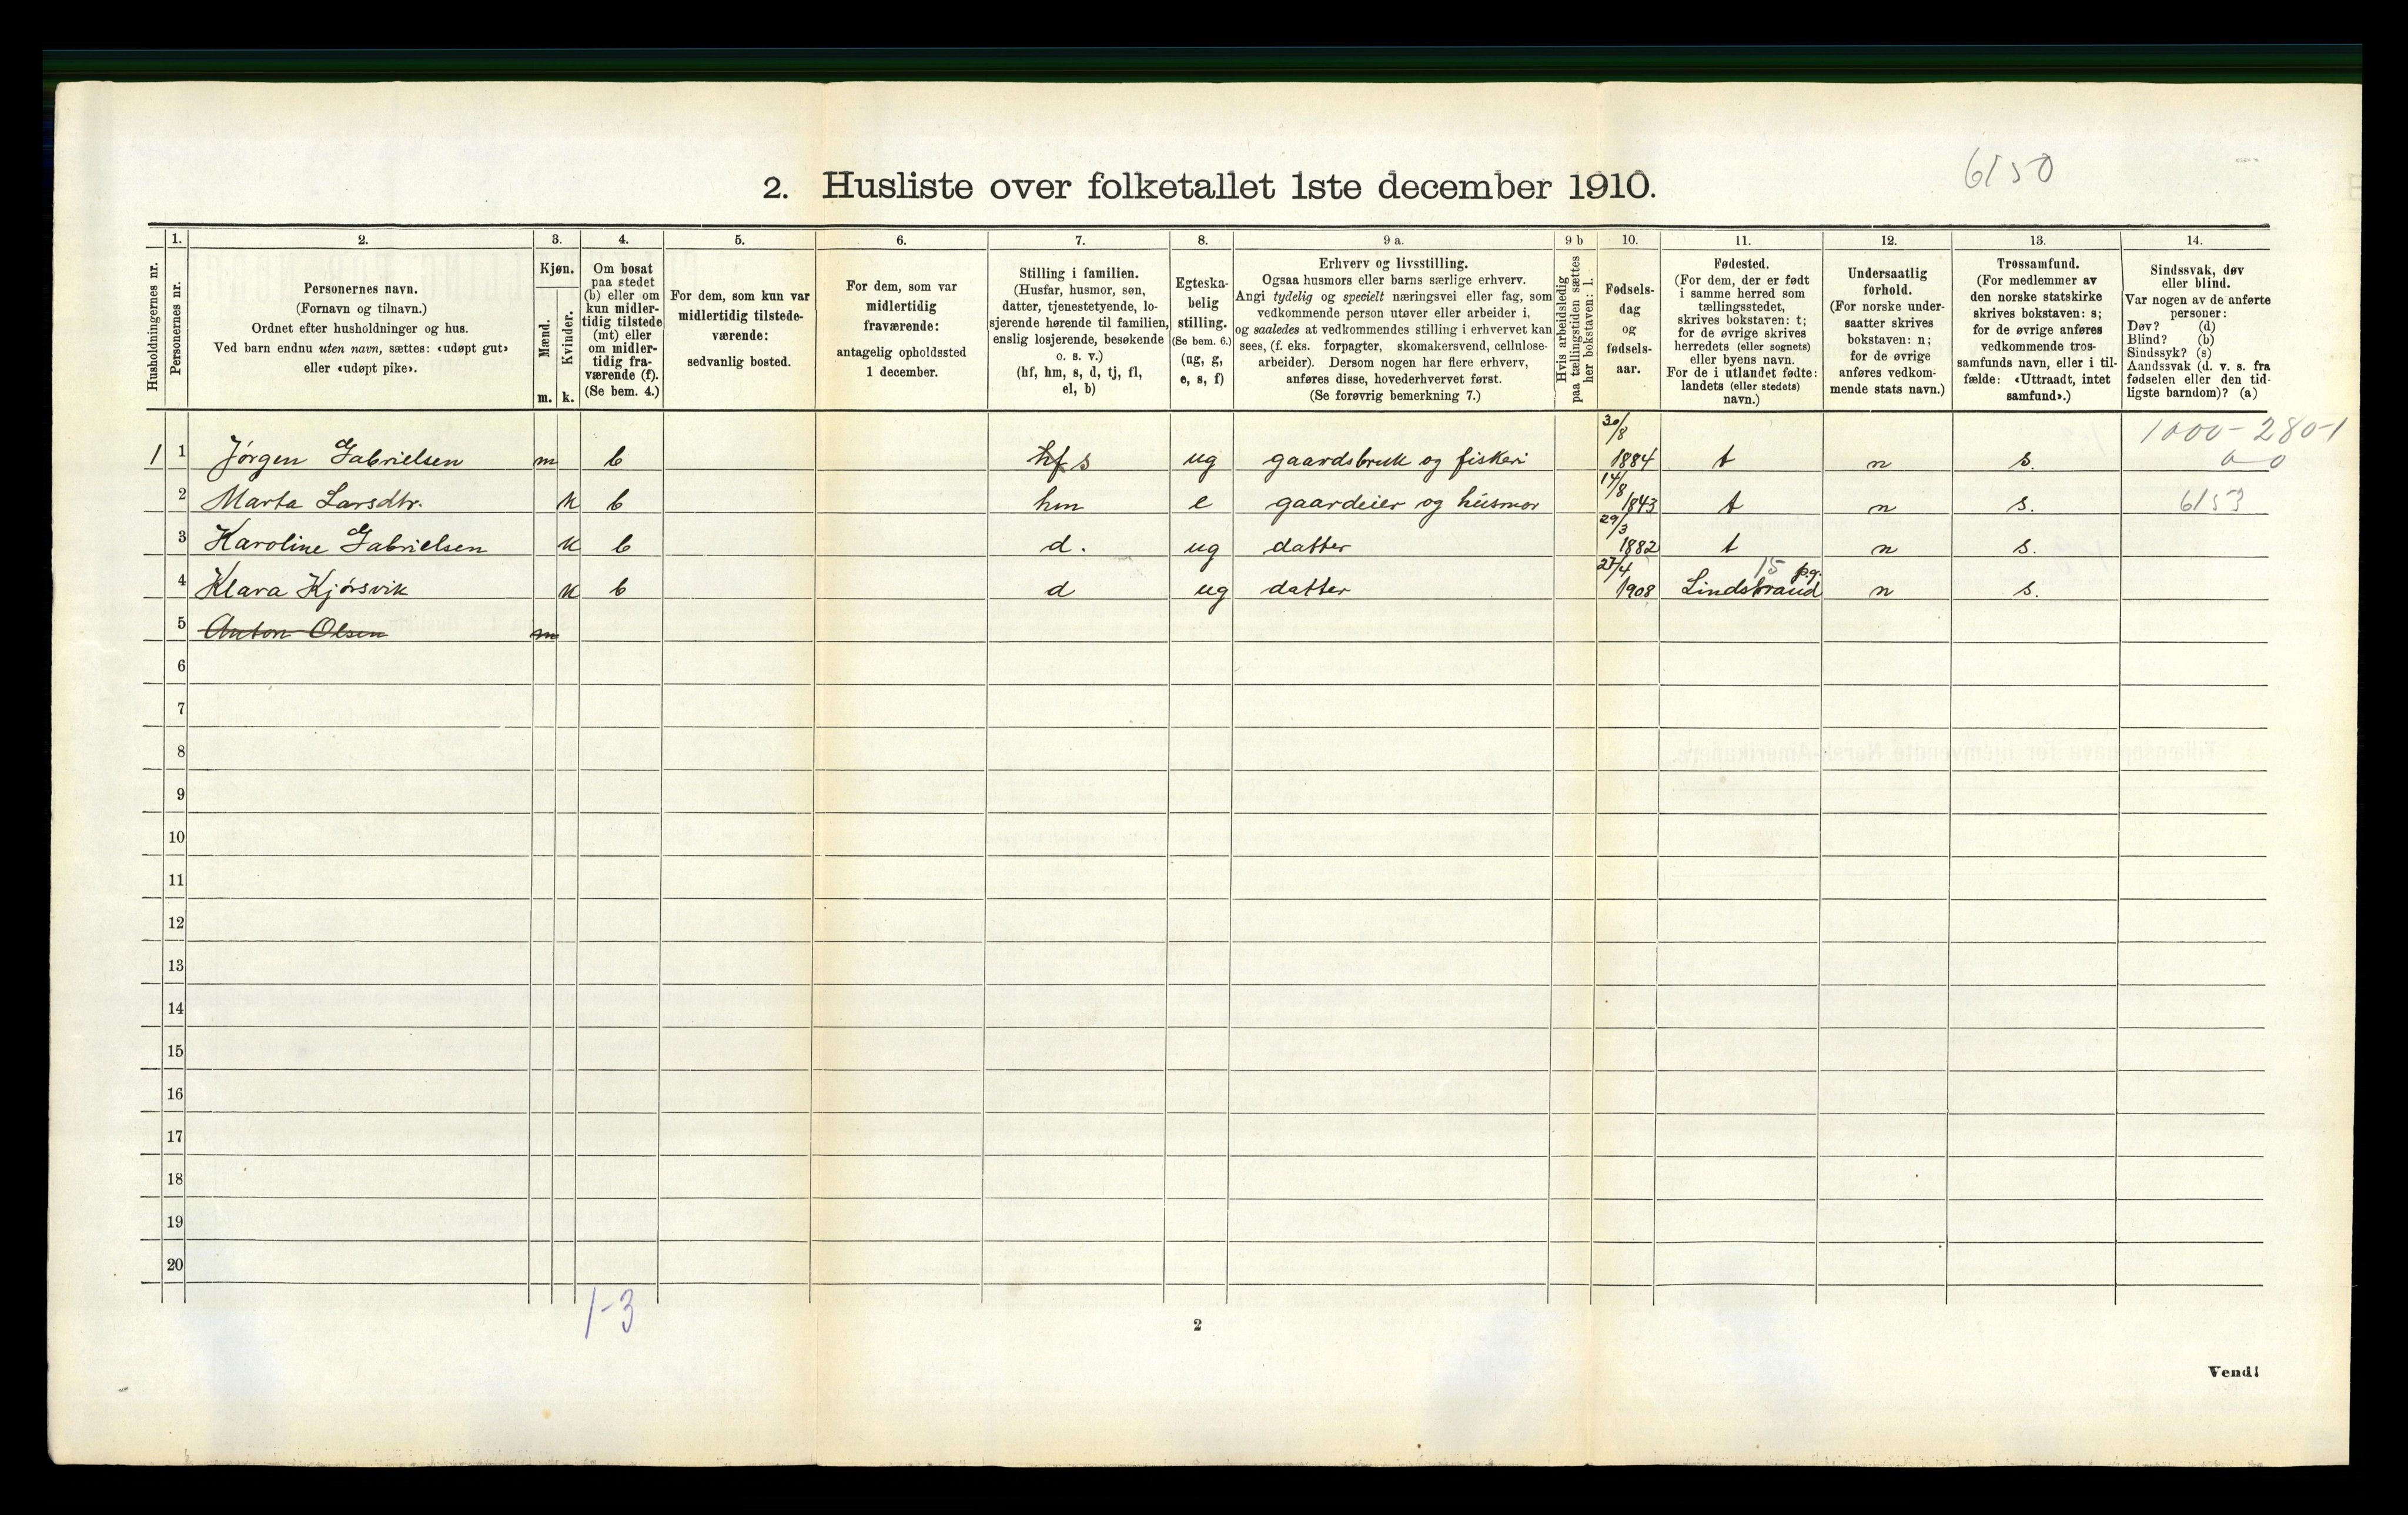 6150
2. Husliste over folketallet 1ste december 1910.
Husholdningernes nr.
1.
Personernes nr.
2.
Personernes navn.
(Fornavn og tilnavn.)
Ordnet efter husholdninger og hus.
Ved barn endnu uten navn, sættes: «udøpt gut»
eller «udøpt pike».
3.
Kjøn.
Mænd.
Kvinder.
m. k.
4.
Om bosat
paa stedet
(b) eller om
kun midler-
tidig tilstede
(mt) eller
om midler-
tidig fra-
værende (f).
(Se bem. 4.)
5.
For dem, som kun var
midlertidig tilstede-
værende:
sedvanlig bosted.
6.
For dem, som var
midlertidig
fraværende:
antagelig opholdssted
1 december.
7.
Stilling i familien.
(Husfar, husmor, søn,
datter, tjenestetyende, lo-
sjerende hørende til familien,
enslig losjerende, besøkende
o. s. v.)
(hf, hm, s, d, tj, fl,
el, b)
8.
Egteska-
belig
stilling.
(Se bem. 6.)
(ug, g,
e, s, f)
9 a.
Erhverv og livsstilling.
Ogsaa husmors eller barns særlige erhverv.
Angi tydelig og specielt næringsvei eller fag, som
vedkommende person utøver eller arbeider i,
og saaledes at vedkommendes stilling i erhvervet kan
sees, (f. eks. forpagter, skomakersvend, cellulose-
arbeider). Dersom nogen har flere erhverv,
anføres disse, hovederhvervet først.
(Se forøvrig bemerkning 7.)
9 b
Hvis arbeidsledig
paa tællingstiden sættes
her bokstaven: l.
10.
Fødsels-
dag
og
fødsels-
aar.
11.
Fødested.
(For dem, der er født
i samme herred som
tællingsstedet,
skrives bokstaven: t;
for de øvrige skrives
herredets (eller sognets)
eller byens navn.
For de i utlandet fødte:
landets (eller stedets)
navn.)
12.
Undersaatlig
forhold.
(For norske under-
saatter skrives
bokstaven: n;
for de øvrige
anføres vedkom-
mende stats navn.)
13.
Trossamfund.
(For medlemmer av
den norske statskirke
skrives bokstaven: s;
for de øvrige anføres
vedkommende tros-
samfunds navn, eller i til-
fælde: «Uttraadt, intet
samfund».)
14.
Sindssvak, døv
eller blind.
Var nogen av de anførte
personer:
Døv? (d)
Blind? (b)
Sindssyk? (s)
Aandssvak (d. v. s. fra
fødselen eller den tid-
ligste barndom)? (a)
1000-280-1
0-0
1 1 Jørgen Gabrielsen m b hf s ug gaardsbruk og fiskeri 30/8 1884 t n s.
2 Marta Larsdtr. k b hm e gaardeier og húsmor 14/8 1843 t n s. 6153
3 Karoline Gabrielsen k b d. ug datter 29/3 1882 t n s.
15 p.g.
4 Klara Kjørsvik k b d ug datter 27/4 1908 Lindsbraud n s.
5 Anton Olsen m
6
7
8
9
10
11
12
13
14
15
16
17
18
19
20
1-3
2
Vend!